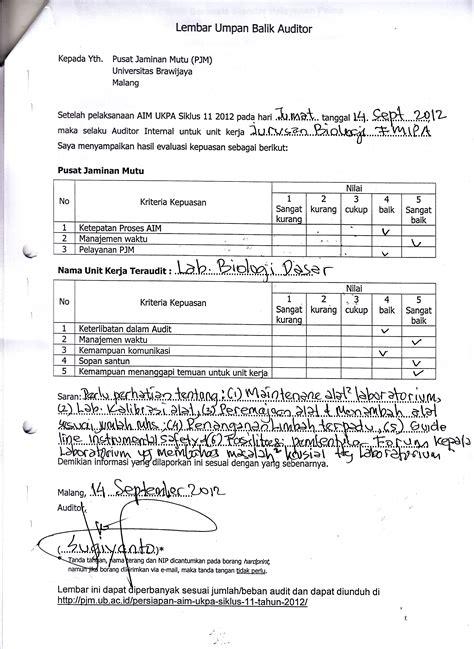 Lembar Umpan Balik Auditor
Kepada Yth. Pusat Jaminan Mutu (PJM)
Universitas Brawijaya
Malang
Setelah pelaksanaan AIM UKPA Siklus 11 2012 pada hari Jumat tanggal 14 Sept 2012
maka selaku Auditor Internal untuk unit kerja Jurusan Biologi FMIPA
Saya menyampaikan hasil evaluasi kepuasan sebagai berikut:
Pusat Jaminan Mutu
No Kriteria Kepuasan Nilai
1 Sangat kurang 2 kurang 3 cukup 4 baik 5 Sangat baik
1 Ketepatan Proses AIM ✓
2 Manajemen waktu ✓
3 Pelayanan PJM ✓
Nama Unit Kerja Teraudit : Lab. Biologi Dasar
No Kriteria Kepuasan Nilai
1 Sangat kurang 2 kurang 3 cukup 4 baik 5 Sangat baik
1 Keterlibatan dalam Audit ✓
2 Manajemen waktu ✓
3 Kemampuan komunikasi ✓
4 Sopan santun ✓
5 Kemampuan menanggapi temuan untuk unit kerja ✓
Saran: Perlu perhatian tentang: (1) Maintenane alat² laboratorium,
(2) Lab. Kalibrasi alat, (3) Peremajaan alat & Menambah alat
sesuai jumlah mhs. (4) Penanganan Limbah terpadu, (5) Guide
line instrumental safety (6) Fasilitasi pembentukan Forum Kepala
Laboratorium yg membahas masalah² krusial ttg Laboratorium
Demikian informasi yang dilaporkan ini sesuai dengan yang sebenarnya.
Malang, 14 September 2012
Auditor,
(Sugiyanto)*
* Tanda tangan, nama terang dan NIP dicantumkan pada borang hardprint,
namun jika borang dikirimkan via e-mail, maka tanda tangan tidak perlu.
Lembar ini dapat diperbanyak sesuai jumlah/beban audit dan dapat diunduh di
http://pjm.ub.ac.id/persiapan-aim-ukpa-siklus-11-tahun-2012/